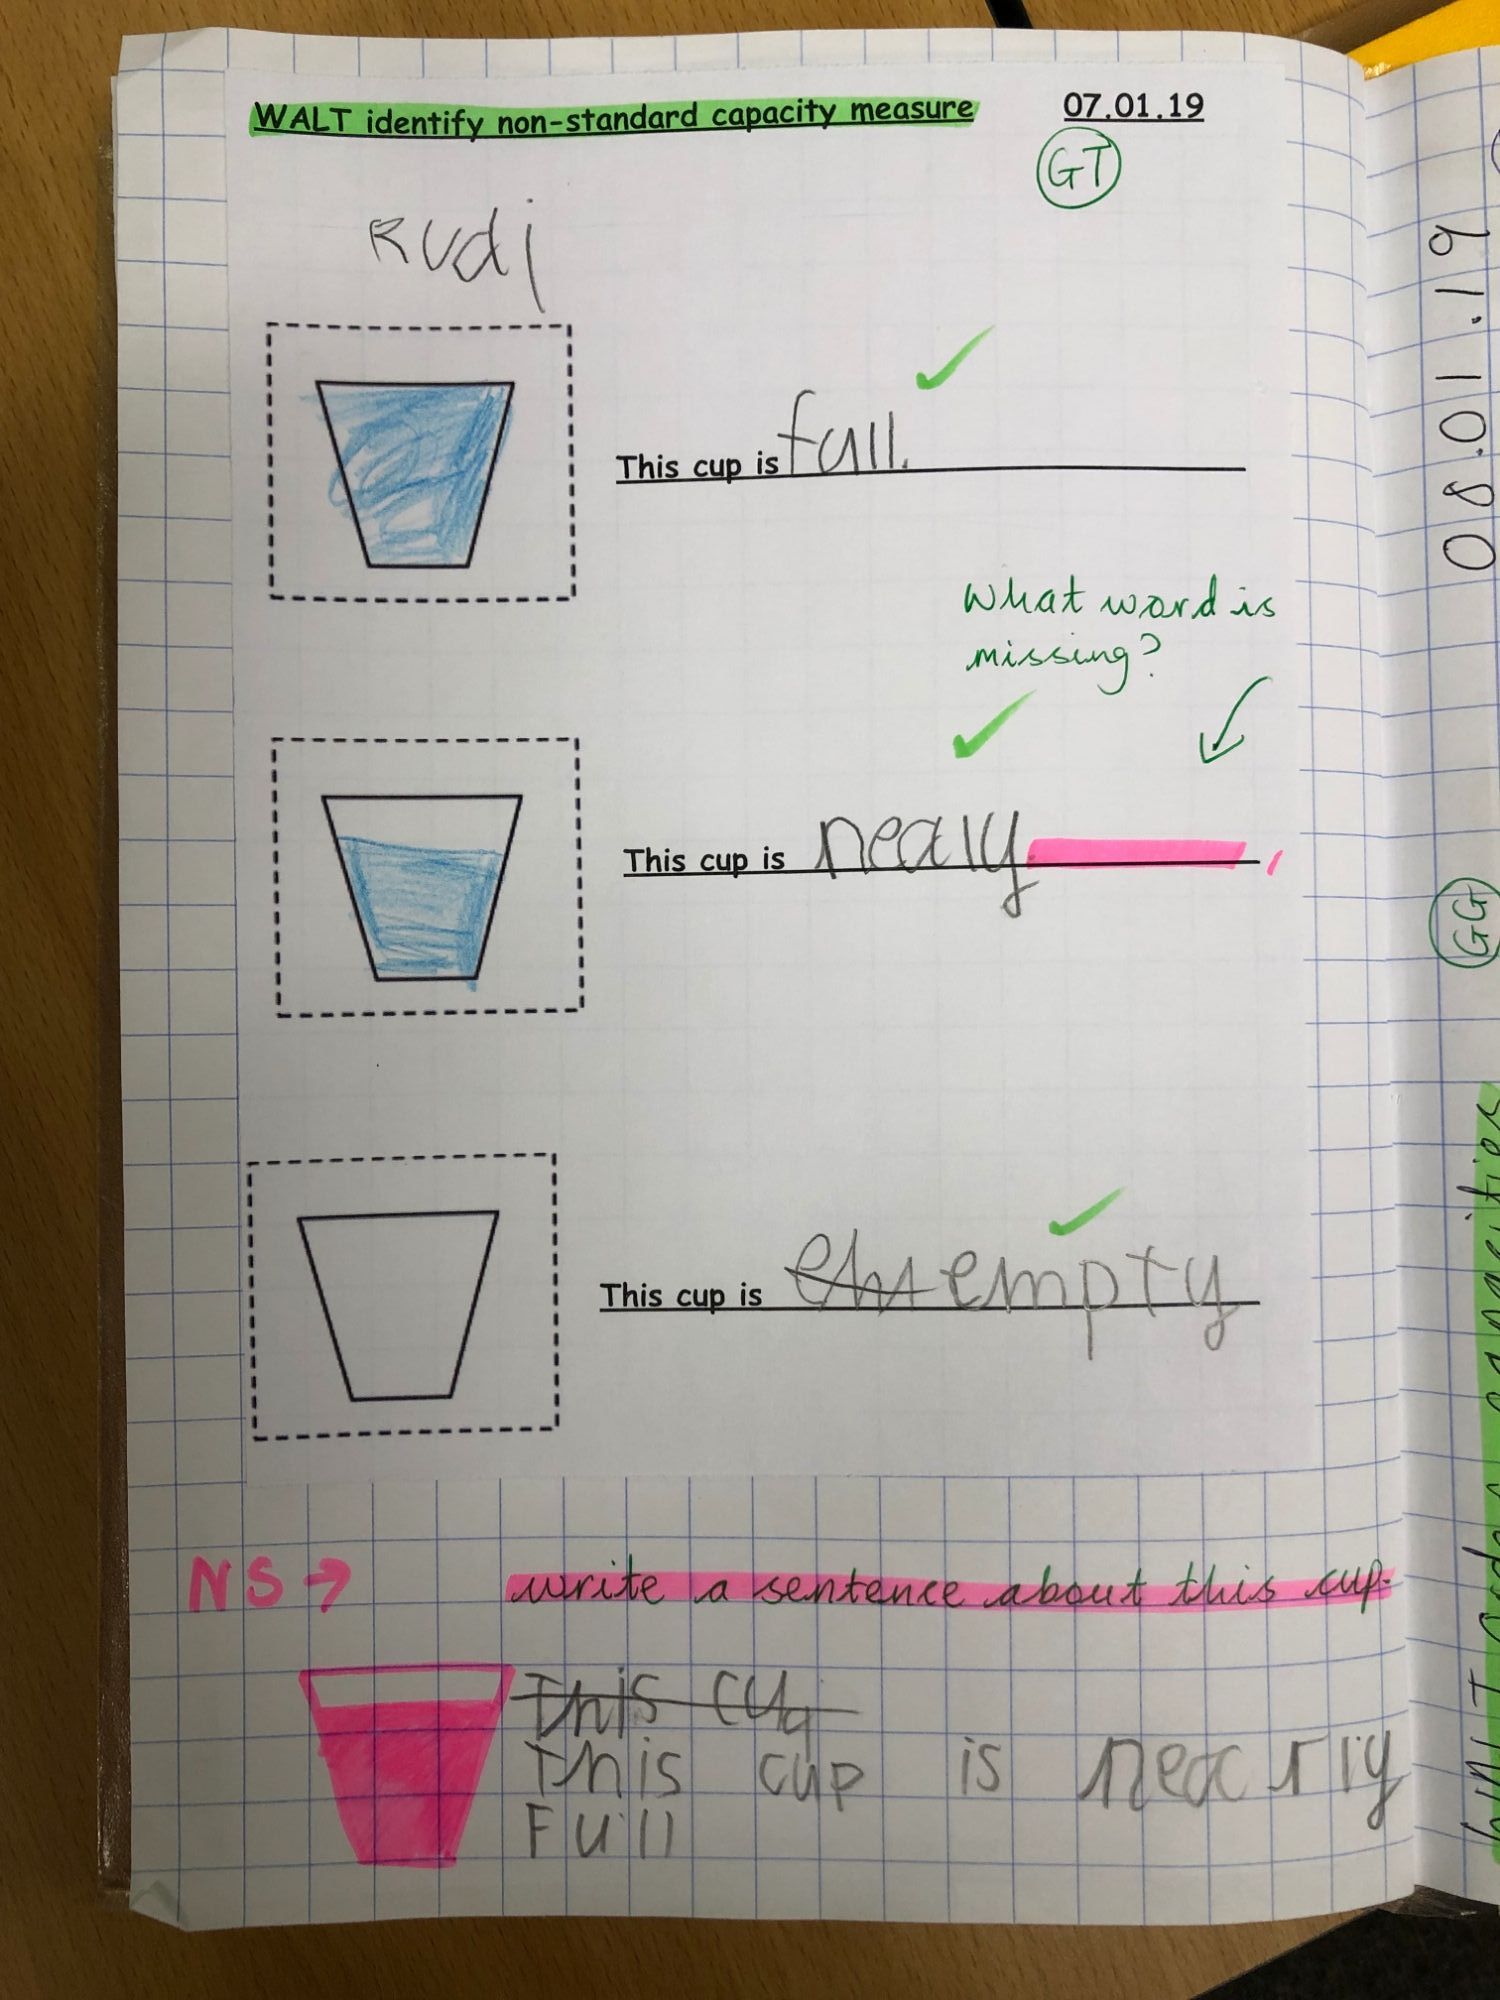 WALT identify non-standard capacity measure 07.01.19
GT
Rudi
This cup is full.
What word is
missing?
This cup is nealy
This cup is em empty
NS → write a sentence about this cup.
This cuq
This cup is nearly
Full
08.01.19
GG